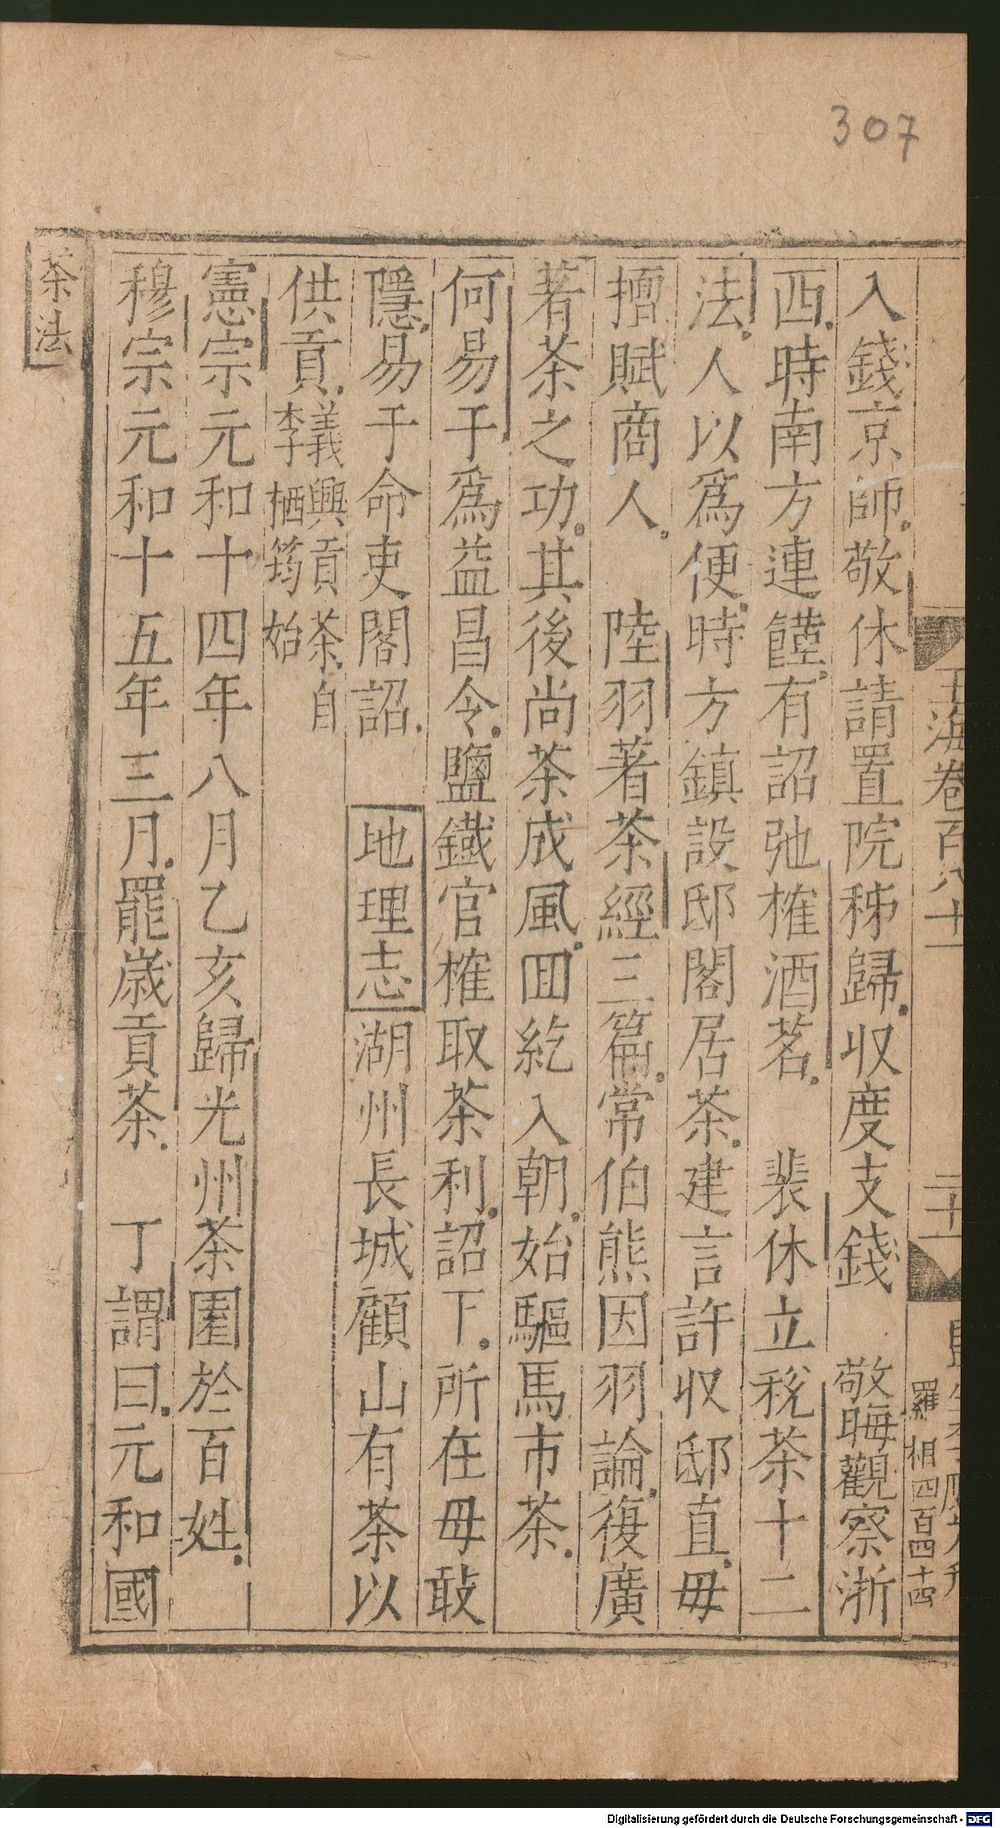 307
玉海卷百八十一
二十
羅相四百四十四
入錢京師敬休請置院秭歸收度支錢　敬晦觀察浙
西時南方連饉有詔弛榷酒茗　裴休立稅茶十二
法人以爲便時方鎮設邸閣居茶建言許收邸直毋
擅賦商人　陸羽著茶經三篇常伯熊因羽論復廣
著茶之功其後尚茶成風回紇入朝始驅馬市茶
何易于爲益昌令鹽鐵官榷取茶利詔下所在毋敢
隱易于命吏閣詔　地理志湖州長城顧山有茶以
供貢義興貢茶自李栖筠始
憲宗元和十四年八月乙亥歸光州茶園於百姓
穆宗元和十五年三月罷歲貢茶　丁謂曰元和國
茶法
Digitalisierung gefördert durch die Deutsche Forschungsgemeinschaft - DFG